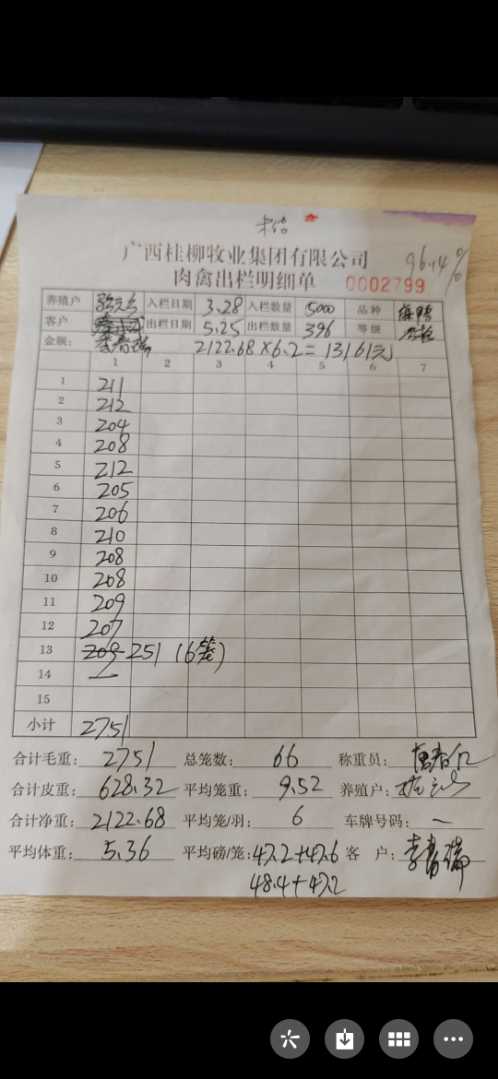 96.14%
广西桂柳牧业集团有限公司
肉禽出栏明细单 0002799
养殖户 入栏日期 3.28 入栏数量 5000 品种
客户 出栏日期 5.25 出栏数量 396 等级
金额: 2122.68×6.2=13161元
1 2 3 4 5 6 7
1 211
2 212
3 204
4 208
5 212
6 205
7 206
8 210
9 208
10 208
11 209
12 207
13 209 251 (6笼)
14 一
15
小计 2751
合计毛重: 2751 总笼数: 66 称重员:
合计皮重: 628.32 平均笼重: 9.52 养殖户:
合计净重: 2122.68 平均笼/羽: 6 车牌号码: 一
平均体重: 5.36 平均磅/笼: 47.2+47.6 客 户: 李春瑞
48.4+47.2